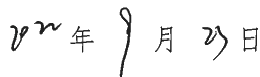 2022年9月23日